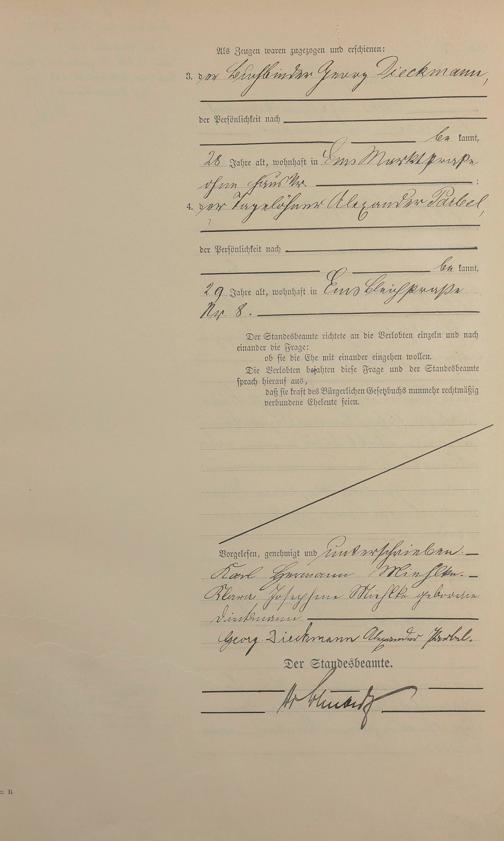 Als Zeugen waren zugezogen und erschienen:
3. der Buchbinder Georg Dieckmann,
der Persönlichkeit nach
be kannt,
28 Jahre alt, wohnhaft in Ems Marktstraße
ohne Haus Nr. ;
4. der Tagelöhner Alexander Paebel,
?
der Persönlichkeit nach
be kannt,
29 Jahre alt, wohnhaft in Ems Bleichstraße
Nr 8.
Der Standesbeamte richtete an die Verlobten einzeln und nach
einander die Frage:
ob sie die Ehe mit einander eingehen wollen.
Die Verlobten bejahten diese Frage und der Standesbeamte
sprach hierauf aus,
daß sie kraft des Bürgerlichen Gesetzbuchs nunmehr rechtmäßig
verbundene Eheleute seien.
Vorgelesen, genehmigt und unterschrieben.
Karl Hermann Miehlke.
Klara Josephine Miehlke geborene
Diekmann
Georg Dieckmann Alexander Paebel.
Der Standesbeamte.
B